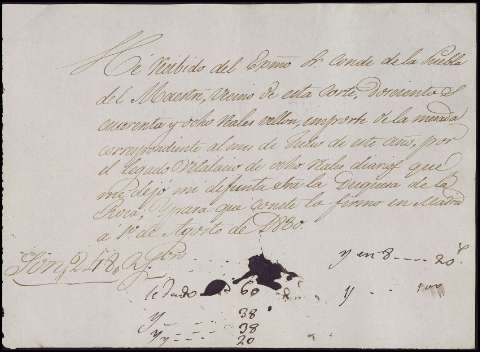 He recibido del Exmo Sr Conde de la Puebla
del Maestre, vecino de esta Corte, Doscientos
cuarenta y ocho reales vellon, importe de la mesada
correspondiente al mes de Julio de este año, por
el legado Vitalicio de ocho reales diarios que
me dejó mi difunta ama la Duquesa de la
Roca, y para que conste lo firmo en Madrid
á 1º de Agosto de 1830.
Son 248 rs
y en 8 20
60
y
38
y 38
y 20